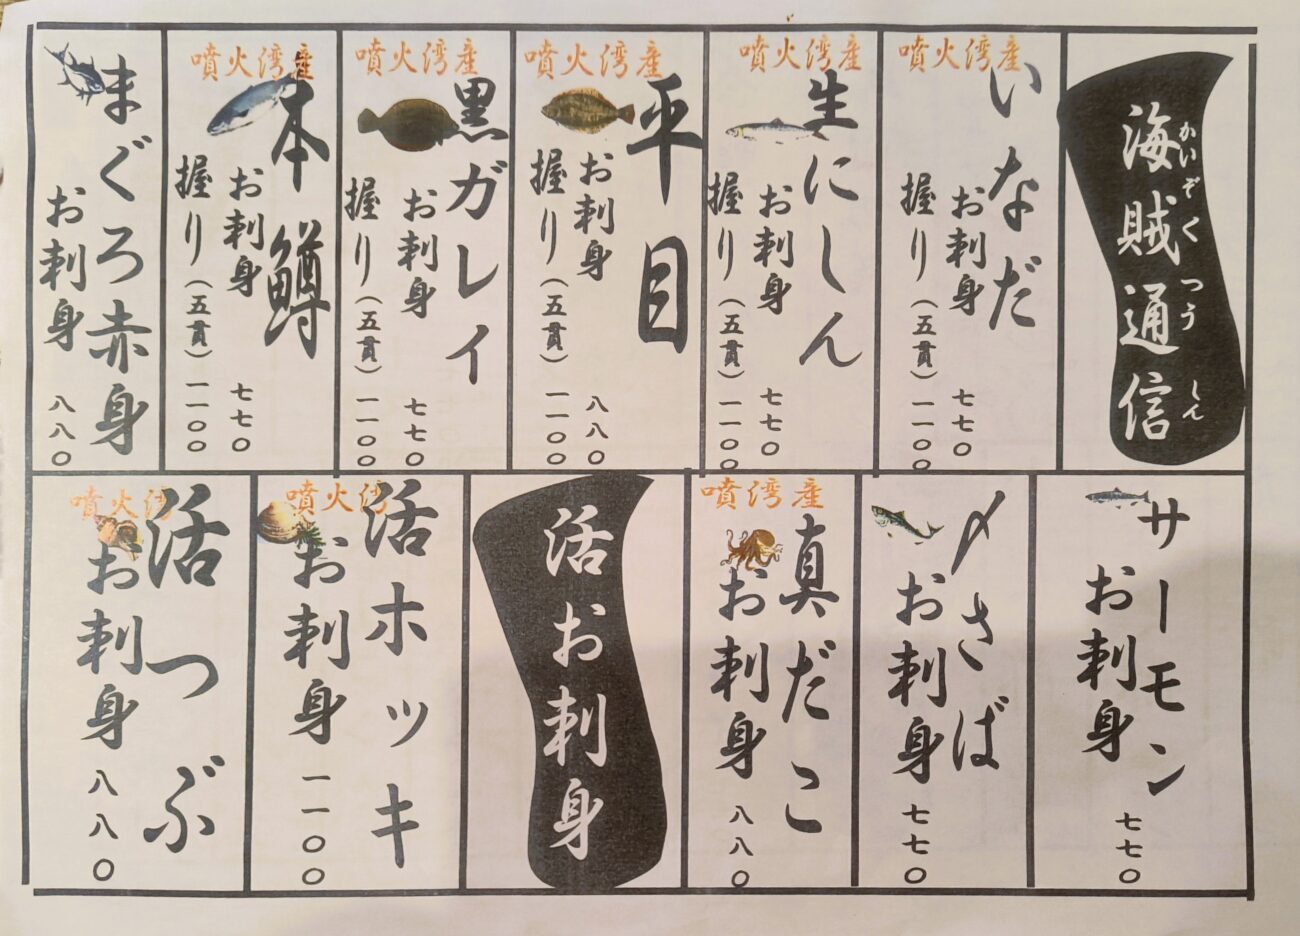 海賊通信
かいぞくつうしん
噴火湾産
いなだ
お刺身 七七〇
握り(五貫)一一〇〇
噴火湾産
生にしん
お刺身 七七〇
握り(五貫)一一〇〇
噴火湾産
平目
お刺身 八八〇
握り(五貫)一一〇〇
噴火湾産
黒ガレイ
お刺身 七七〇
握り(五貫)一一〇〇
噴火湾産
本鱒
お刺身 七七〇
握り(五貫)一一〇〇
まぐろ赤身
お刺身 八八〇
サーモン
お刺身 七七〇
〆さば
お刺身 七七〇
噴湾産
真だこ
お刺身 八八〇
活お刺身
噴火湾
活ホッキ
お刺身 一一〇〇
噴火湾
活つぶ
お刺身 八八〇